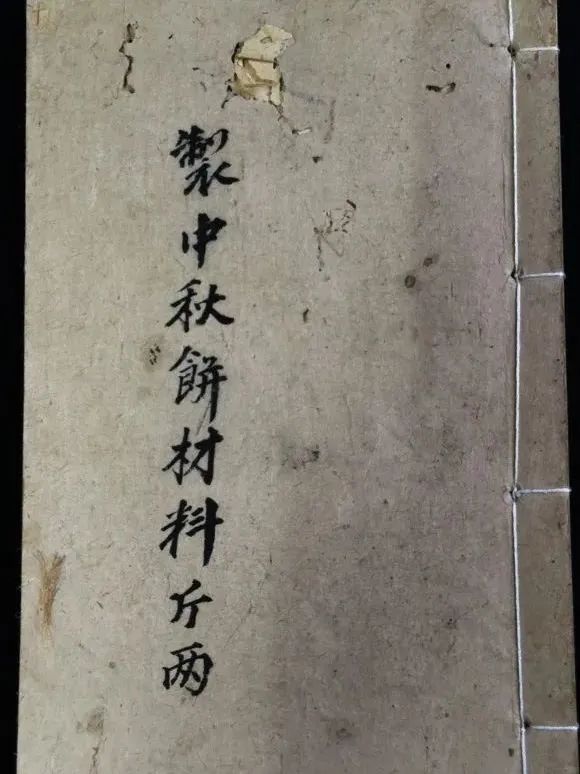 製中秋餅材料斤两